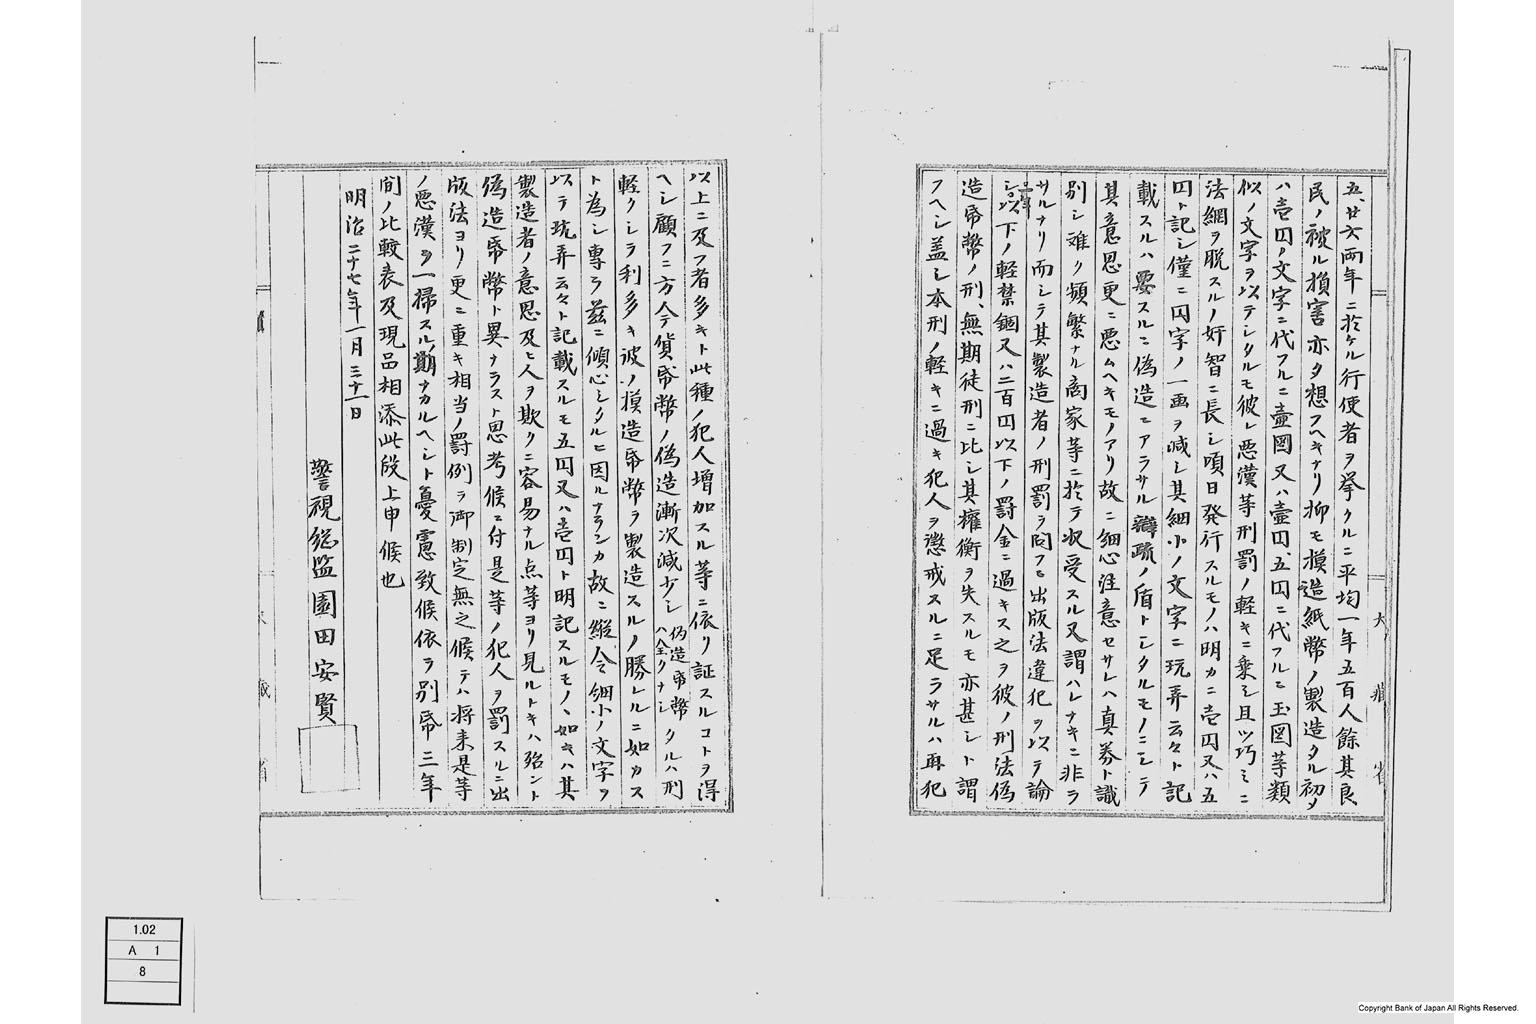 五、廿六両年ニ於ケル行使者ヲ挙クルニ平均一年五百人餘其良
民ノ被ル損害亦タ想フヘキナリ抑モ摸造紙幣ノ製造タル初メ
ハ壱円ノ文字ニ代フルニ壷圓又ハ壷円、五円ニ代フルニ玉圓等類
似ノ文字ヲ以テシタルモ彼レ悪漢等刑罰ノ軽キニ乗シ且ツ巧ミニ
法網ヲ脱スルノ奸智ニ長シ頃日発行スルモノハ明カニ壱円又ハ五
円ト記シ僅ニ円字ノ一画ヲ減シ其細小ノ文字ニ玩弄云々ト記
載スルハ要スルニ偽造ニアラサル辯疏ノ盾トシタルモノニシテ
其意思更ニ悪ムヘキモノアリ故ニ細心注意セサレハ真券ト識
別シ難ク頻繁ナル商家等ニ於テ収受スル又謂ハレナキニ非ラ
サルナリ而シテ其製造者ノ刑罰ヲ問フモ出版法違犯ヲ以テ論
シ一年以下ノ軽禁錮又ハ二百円以下ノ罰金ニ過キス之ヲ彼ノ刑法偽
造帋幣ノ刑、無期徒刑ニ比シ其権衡ヲ失スルモ亦甚シト謂
フヘシ盖シ本刑ノ軽キニ過キ犯人ヲ懲戒スルニ足ラサルハ再犯
以上ニ及フ者多キト此種ノ犯人増加スル等ニ依リ証スルコトヲ得
ヘシ顧フニ方今貨帋幣ノ偽造漸次減少シ偽造帋幣ハ全クナシタルハ刑
軽クシテ利多キ彼ノ摸造帋幣ヲ製造スルノ勝レルニ如カス
ト為シ専ラ茲ニ傾心シタルニ因ルナランカ故ニ縦令細小ノ文字ヲ
以テ玩弄云々ト記載スルモ五円又ハ壱円ト明記スルモノヽ如キハ其
製造者ノ意思及ヒ人ヲ欺クニ容易ナル点等ヨリ見ルトキハ殆ント
偽造帋幣ト異ナラスト思考候ニ付是等ノ犯人ヲ罰スルニ出
版法ヨリ更ニ重キ相当ノ罰例ヲ御制定無之候テハ将来是等
ノ悪漢ヲ一掃スルノ期ナカルヘシト憂慮致候依テ別帋三年
間ノ比較表及現品相添此段上申候也
明治二十七年一月三十一日
警視総監園田安賢
大藏省
1.02
A 1
8
Copyright Bank of Japan All Rights Reserved.